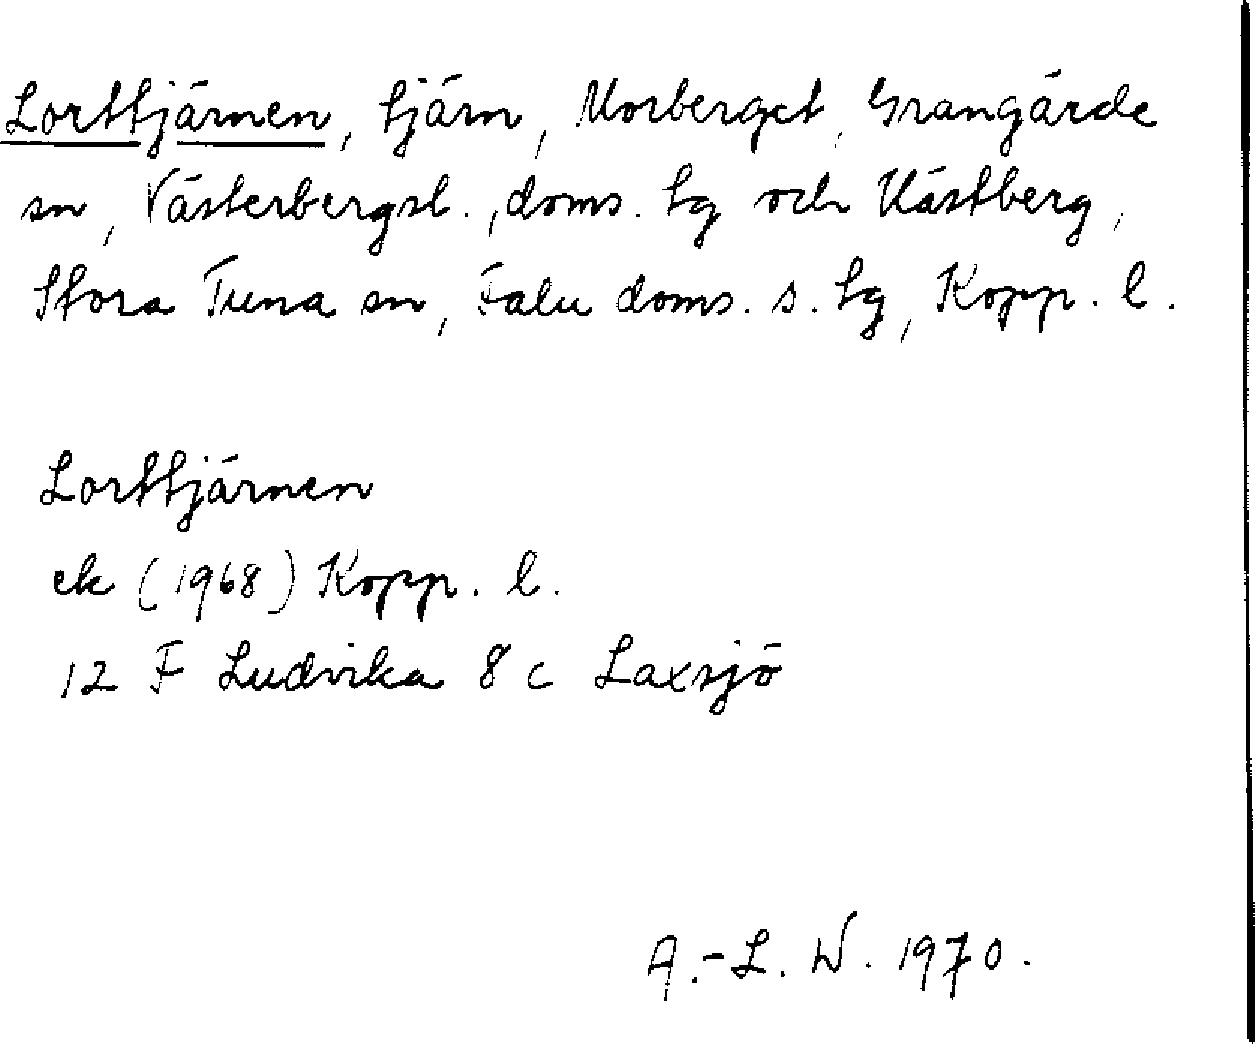 Lorttjärnen, tjärn, Morberget, Grangärde
sn, Västerbergsl., doms. tg och Kästberg,
Stora Tuna sn, Falu doms. s. tg, Kopp. l.
Lorttjärnen
ek (1968) Kopp. l.
12 F Ludvika 8 c Laxsjö
A.-L. W. 1970.